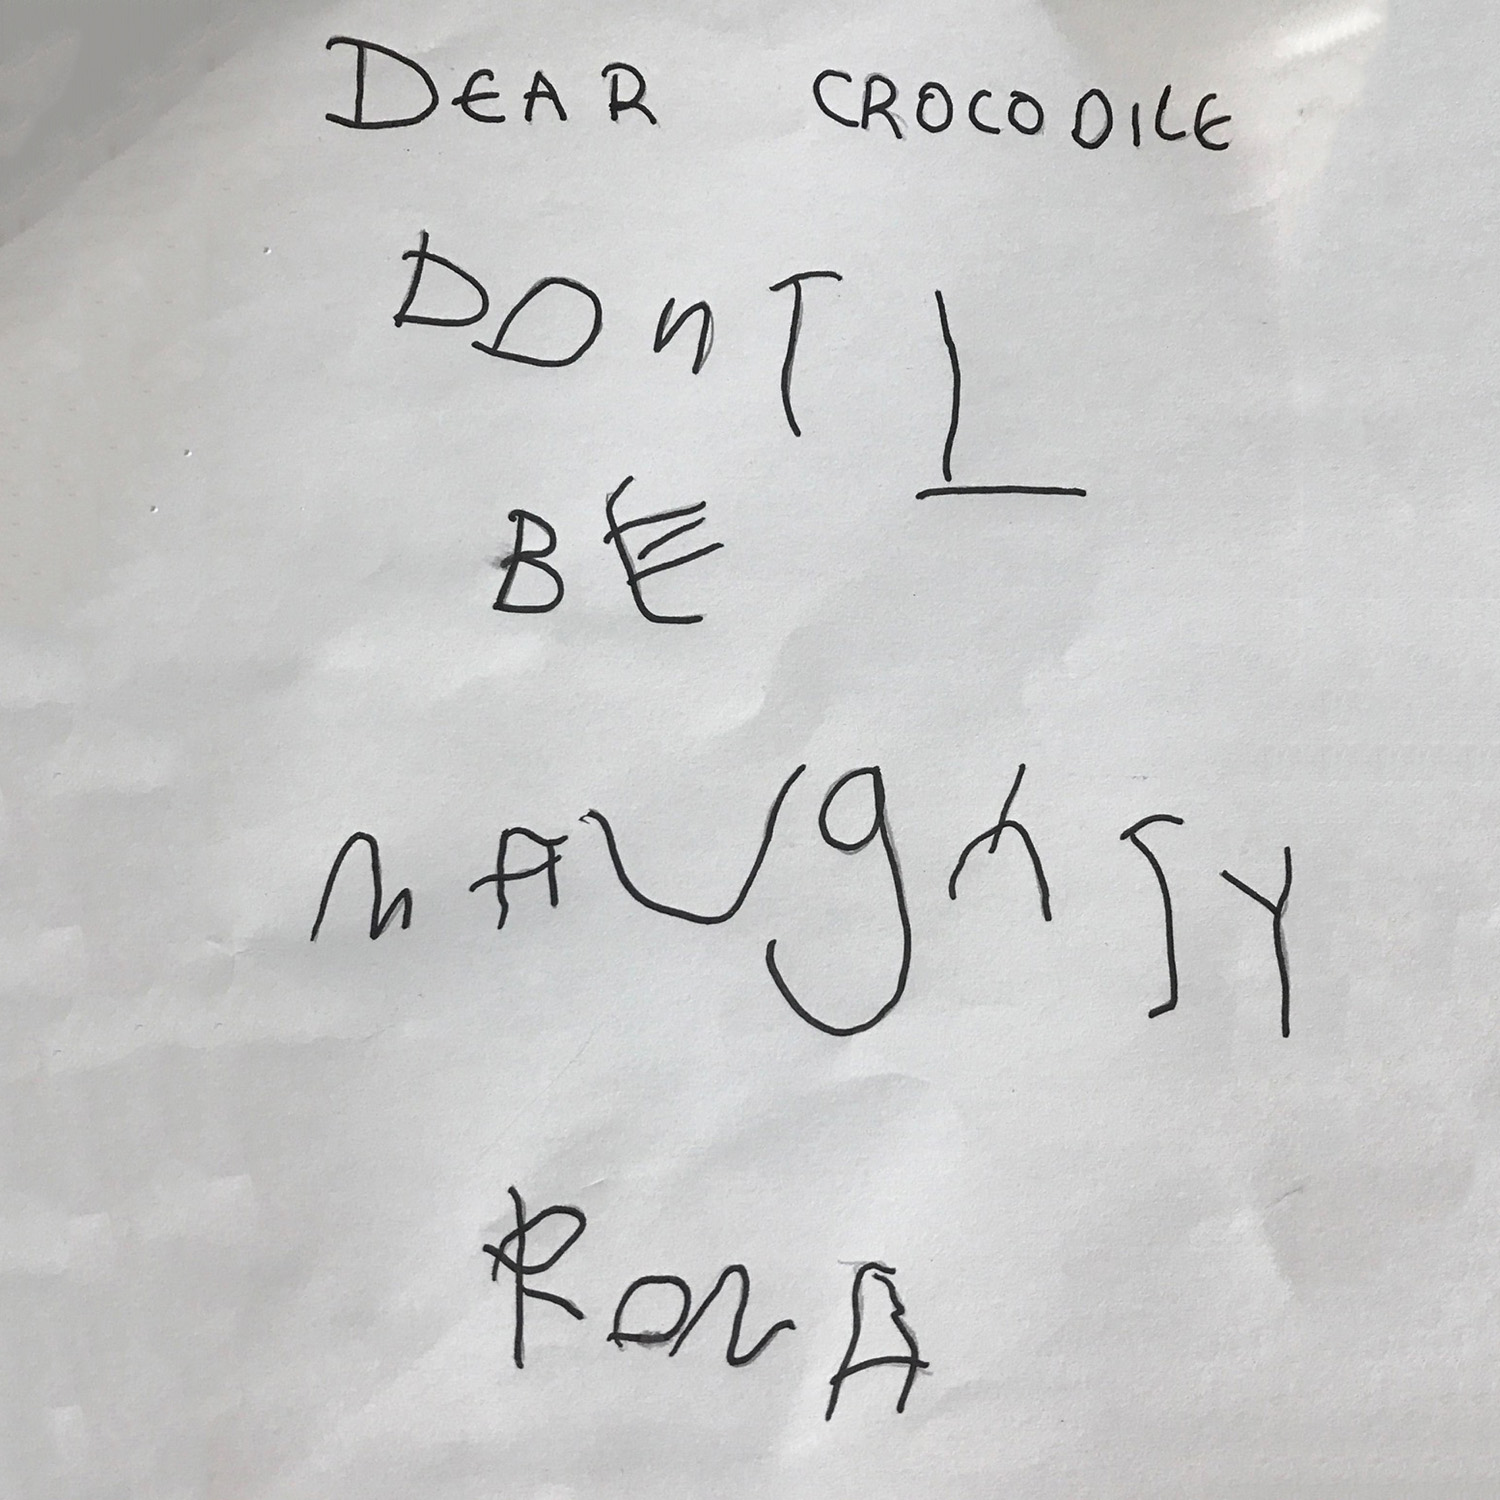 DEAR CROCODILE
DOnT L
BE
nAUghTY
RONA